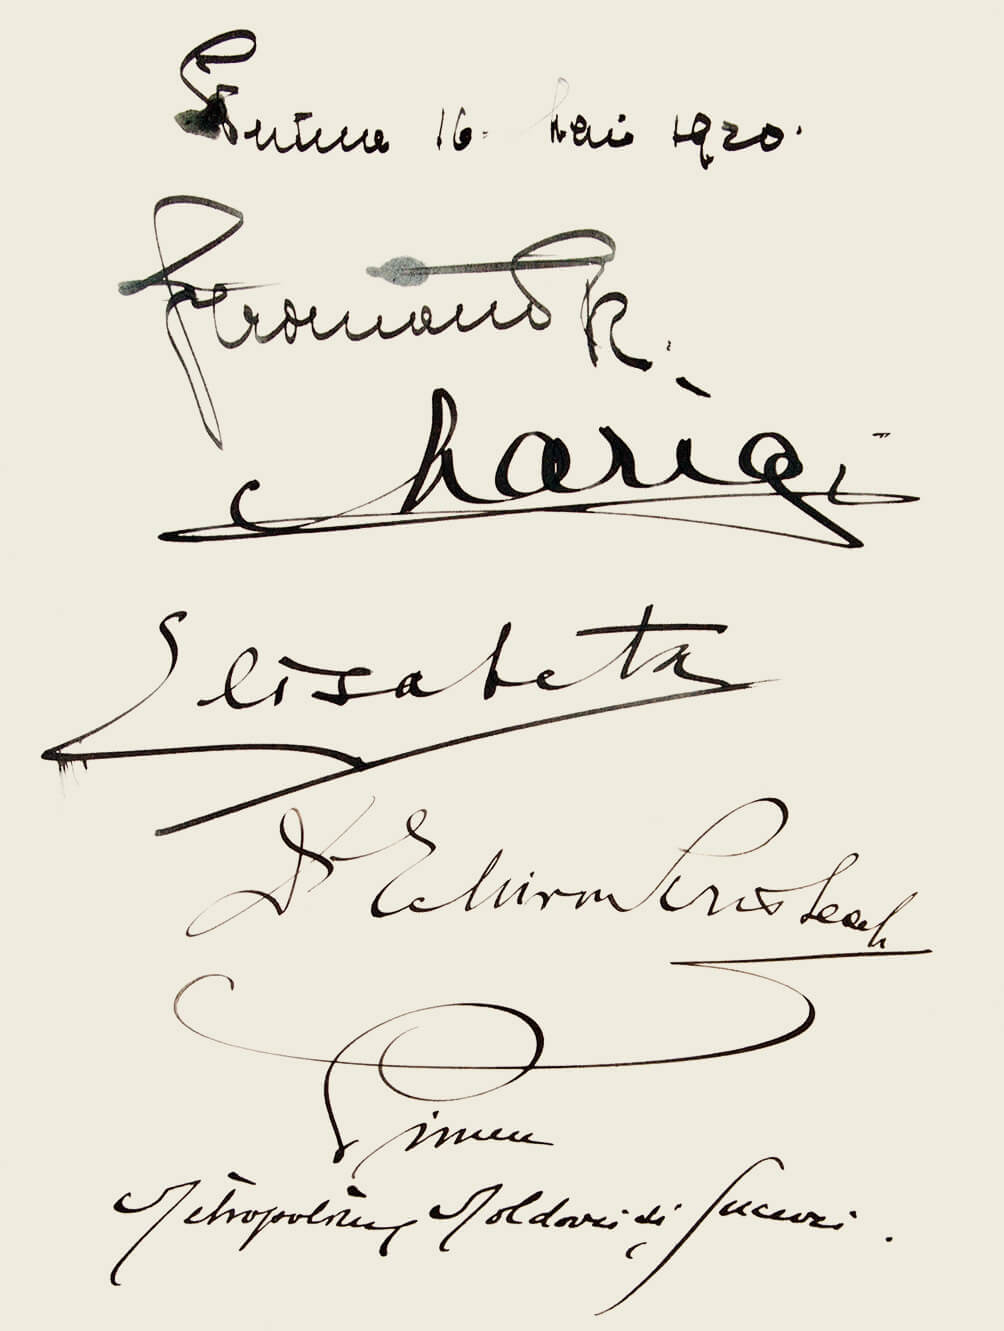 Putna 16 Mai 1920.
Ferdinand R.
Maria
Elisabeta
Dr E Miron Cristea
Pimen
Mitropolitul Moldovei și Sucevei.